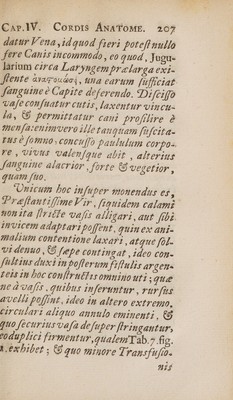 CAP. IV. CORDIS ANATOME. 207
datur Vena, id quod fieri potest nullo
fere Canis incommodo, eo quod, Jugu-
larium circa Laryngem prælarga exi-
stente ἀναστομώσει, una earum sufficiat
sanguine è Capite deferendo. Discisso
vase consuatur cutis, laxentur vincu-
la, & permittatur cani prosilire è
mensa: enimvero ille tanquam suscita-
tus è somno concusso paululum corpo-
re, vivus valensque abit, alterius
sanguine alacrior, forte & vegetior,
quam suo.
Unicum hoc insuper monendus es,
Præstantissime Vir, siquidem calami
non ita strictè vasis alligari, aut sibi
invicem adaptari possent, quin ex ani-
malium contentione laxari, atque sol-
vi denuo, & sæpe contingat, ideo con-
sultius duxi in posterum fistulis argen-
teis in hoc constructis omnino uti; quæ
ne à vasis, quibus inferuntur, rursus
avelli possint, ideo in altero extremo,
circulari aliquo annulo eminenti, &
quo securius vasa desuper stringantur,
eo duplici firmentur, qualem Tab. 7. fig.
exhibet; & quo minore Transfusio-
nis